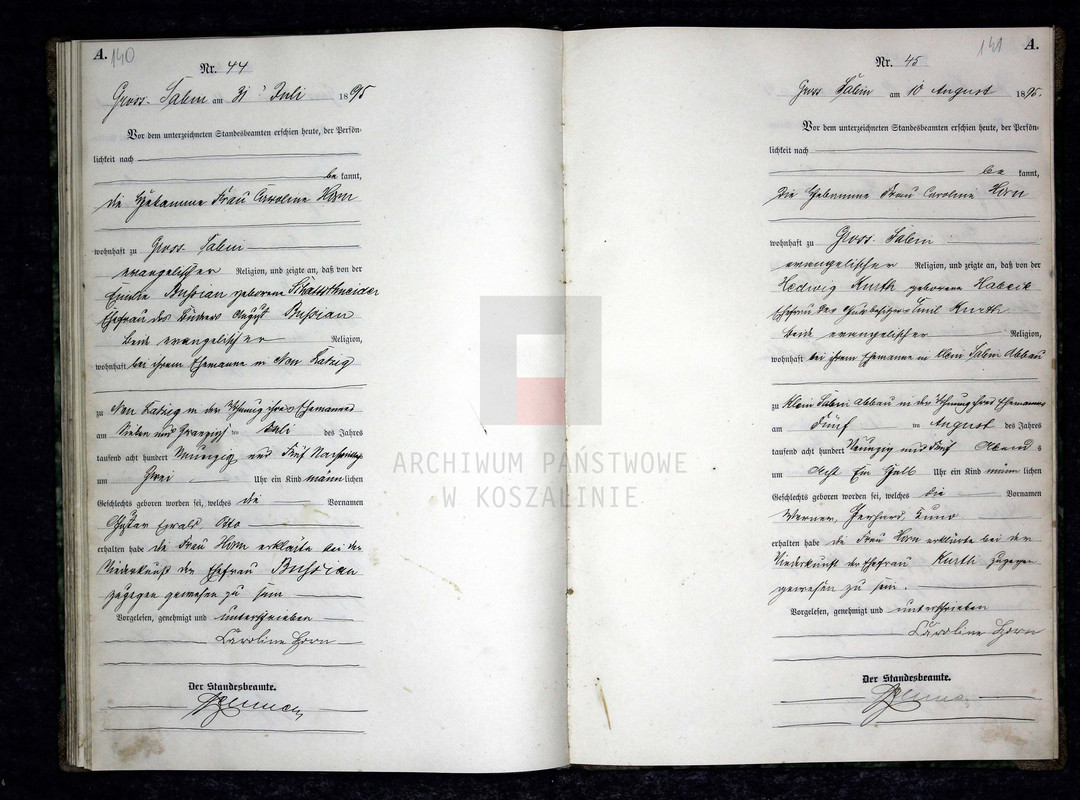 A. 140
Nr. 44
Gross-Sabin am 31 Juli 1895
Vor dem unterzeichneten Standesbeamten erschien heute, der Persön-
lichkeit nach
be kannt,
die Hebamme Frau Caroline Horn
wohnhaft zu Gross-Sabin
evangelischer Religion, und zeigte an, daß von der
Emilie Bussian geborene
Ehefrau des August Bussian
beide evangelischer Religion,
wohnhaft bei ihrem Ehemanne in Neu Latzig
zu Neu Latzig in der Wohnung ihres Ehemannes
am sieben und zwanzigsten Juli des Jahres
tausend acht hundert neunzig und fünf Nachmittags
um zwei Uhr ein Kind männlichen
Geschlechts geboren worden sei, welches die Vornamen
Gustav Ewald Otto
erhalten habe die Frau Horn erklärte bei der
Niederkunft der Ehefrau Bussian
zugegen gewesen zu sein
Vorgelesen, genehmigt und unterschrieben
Caroline Horn
Der Standesbeamte.
141 A.
Nr. 45
Gross Sabin am 10 August 1895.
Vor dem unterzeichneten Standesbeamten erschien heute, der Persön-
lichkeit nach
be kannt,
die Hebamme Frau Caroline Horn
wohnhaft zu Gross-Sabin
evangelischer Religion, und zeigte an, daß von der
Hedwig Kurth geborene
Ehefrau des Emil Kurth
beide evangelischer Religion,
wohnhaft bei ihrem Ehemanne in Klein Sabin Abbau
zu Klein Sabin Abbau in der Wohnung ihres Ehemannes
am fünf August des Jahres
tausend acht hundert neunzig und fünf Abends
um acht ein halb Uhr ein Kind männlichen
Geschlechts geboren worden sei, welches die Vornamen
Werner, Gerhard, Kuno
erhalten habe die Frau Horn erklärte bei der
Niederkunft der Ehefrau Kurth zugegen
gewesen zu sein.
Vorgelesen, genehmigt und unterschrieben
Caroline Horn
Der Standesbeamte.
ARCHIWUM PAŃSTWOWE
W KOSZALINIE